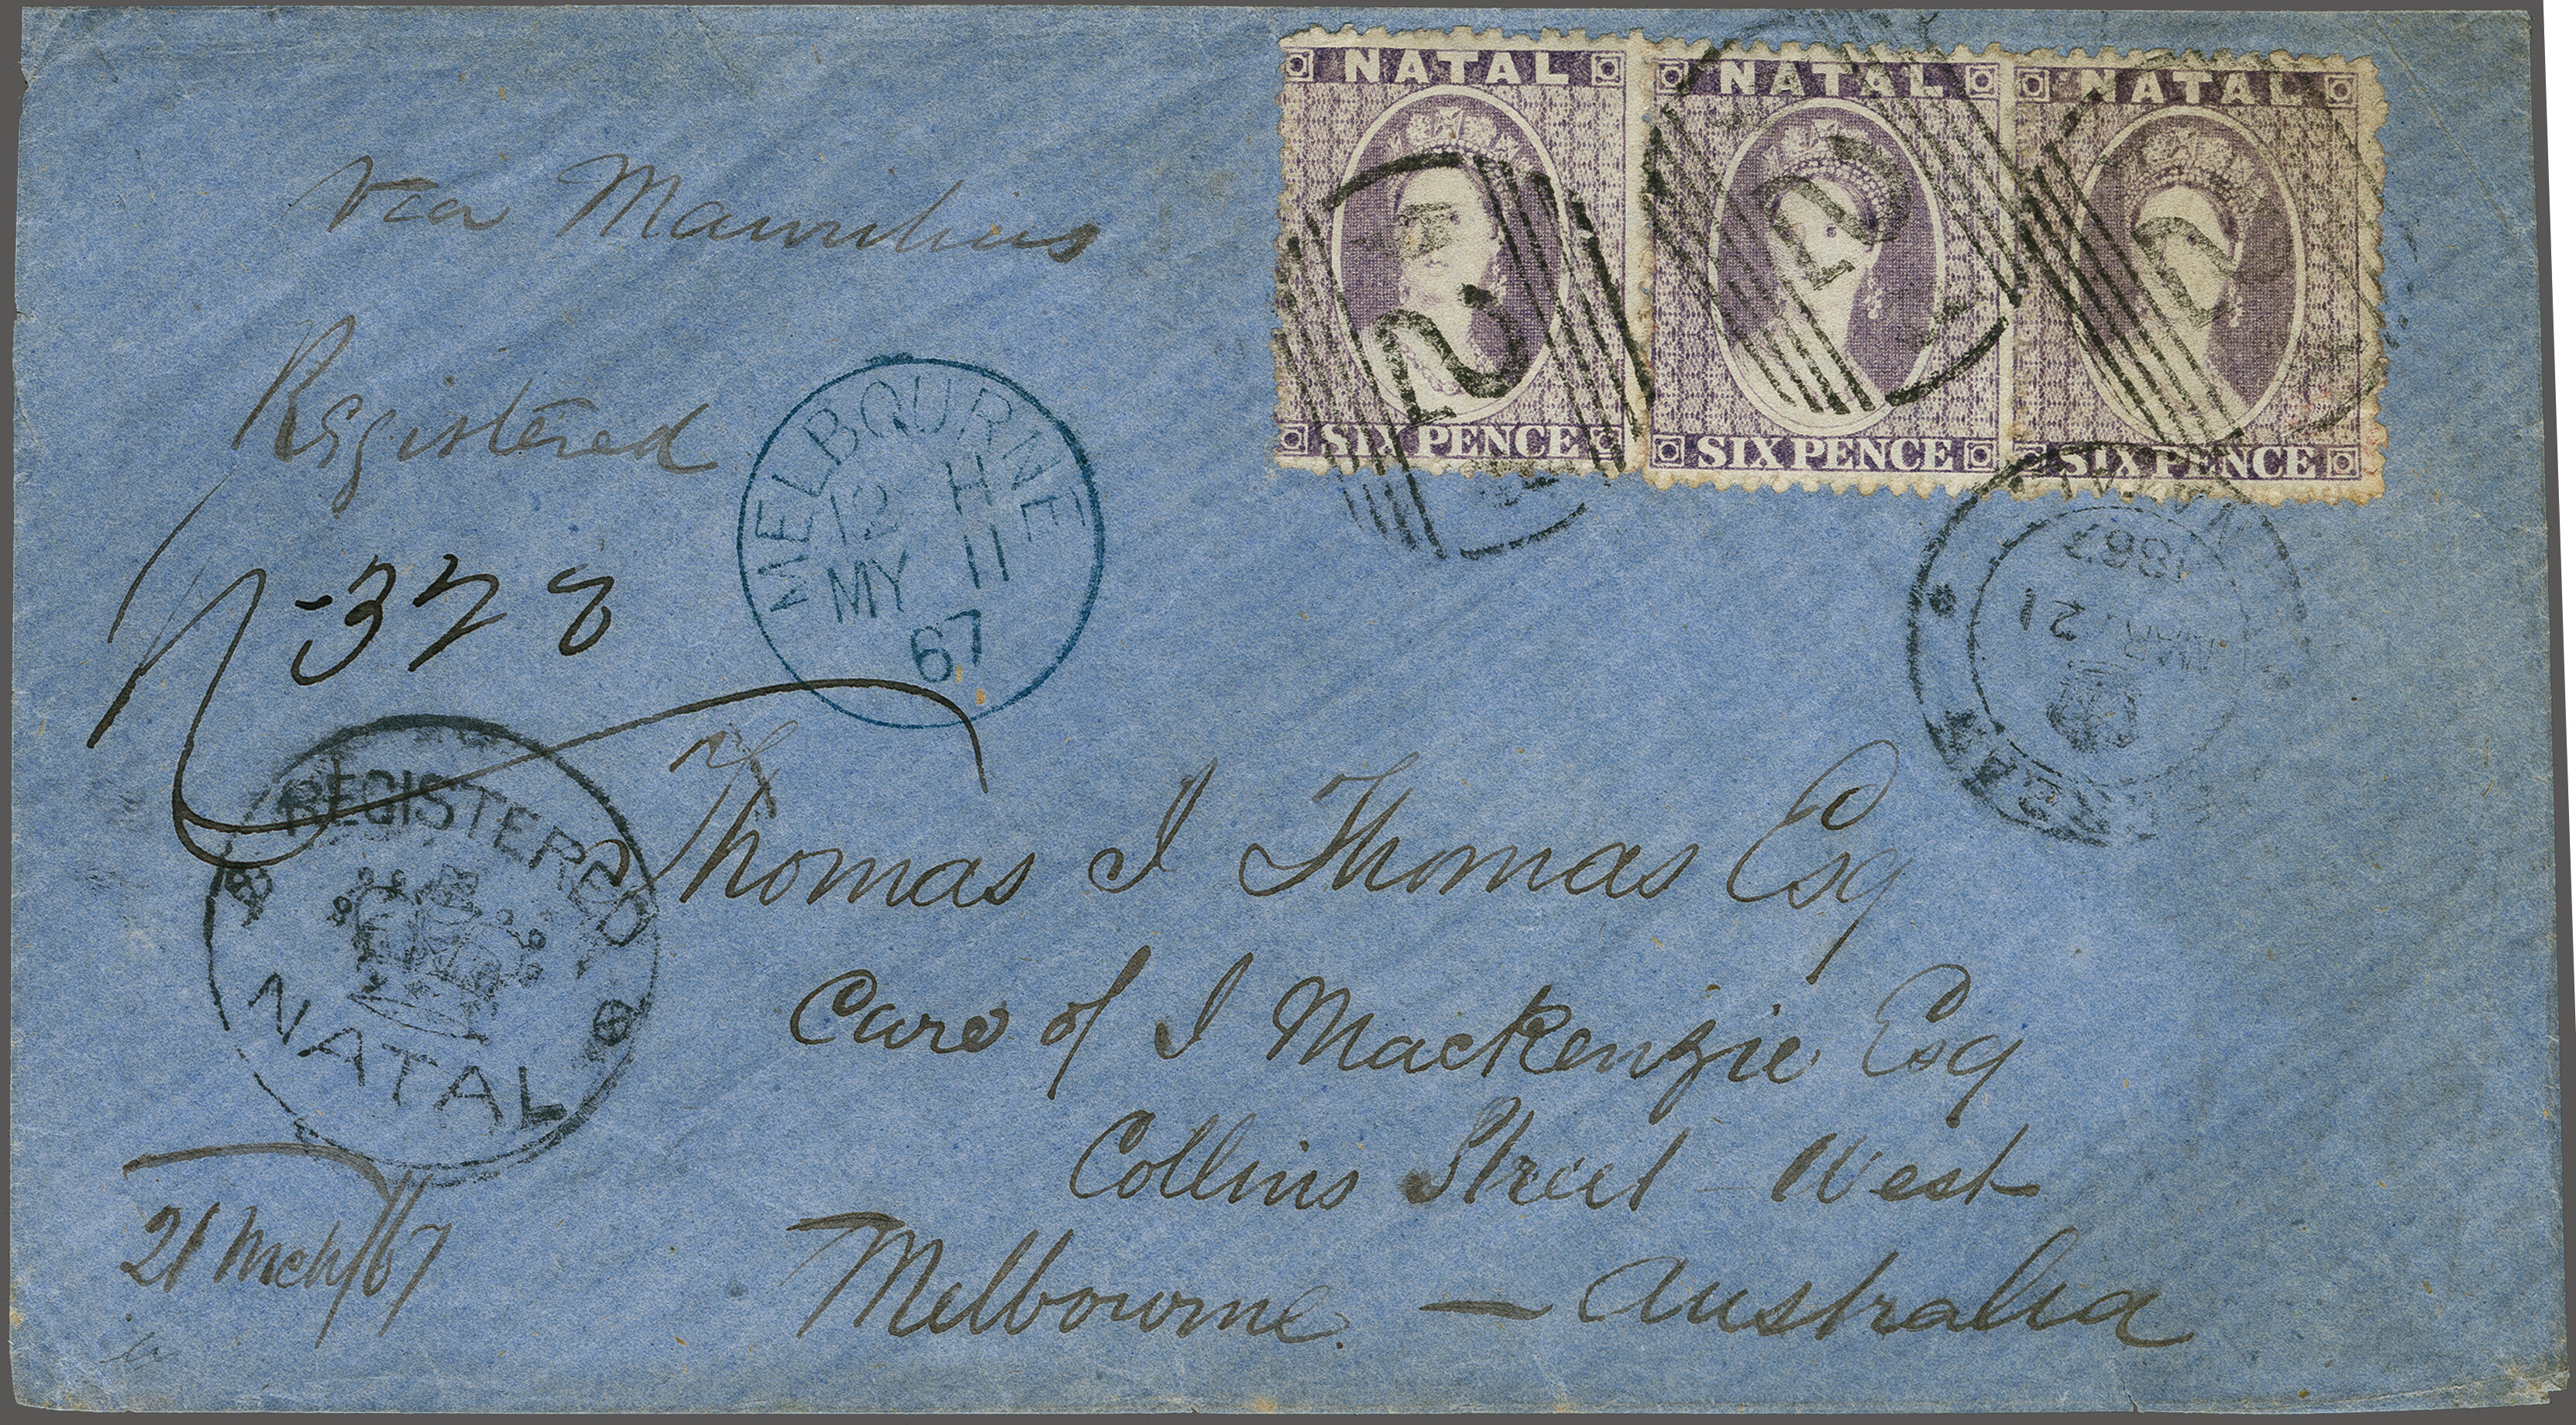 NATAL
SIX PENCE
NATAL
SIX PENCE
NATAL
SIX PENCE
Via Mauritius
Registered
MELBOURNE
12 H
MY 11
67
328
NATAL
1867
MAR 21
REGISTERED
NATAL
Thomas J Thomas Esq
Care of J MacKenzie Esq
Collins Street - West
Melbourne - Australia
21 Mch/67